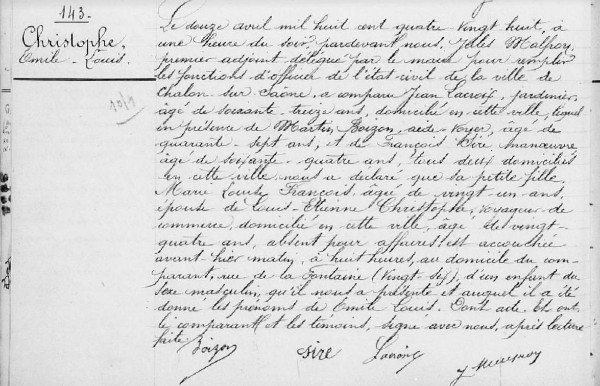 143.
Christophe,
Emile - Louis.
Le douze avril mil huit cent quatre vingt huit, à
une heure du soir, pardevant nous, Jules
premier adjoint délégué par le maire pour remplir
les fonctions d'officier de l'état civil de la ville de
Chalon sur Saône, a comparu Jean Lacroix, jardinier,
âgé de soixante - treize ans, domicilié en cette ville, lequel
en présence de Martin Boizon, aide - voyer, âgé de
quarante - sept ans, et de François Sire, manœuvre,
âgé de soixante - quatre ans, tous deux domiciliés
en cette ville, nous a déclaré que sa petite fille
Marie Louise François, âgée de vingt - un - ans,
épouse de Louis - Etienne Christophe, voyageur - de
commerce, domicilié en cette ville, âgé de vingt -
quatre ans, absent pour affaires est accouchée
avant hier matin, à huit heures, au domicile du com-
parant, rue de la Fontaine (vingt - six), d'un enfant du
sexe masculin, qu'il nous a présenté et auquel il a été
donné les prénoms de Emile Louis. Dont acte. Et ont
le comparant et les témoins, signé avec nous, après lecture
faite.
Boizon
Sire
Lacroix